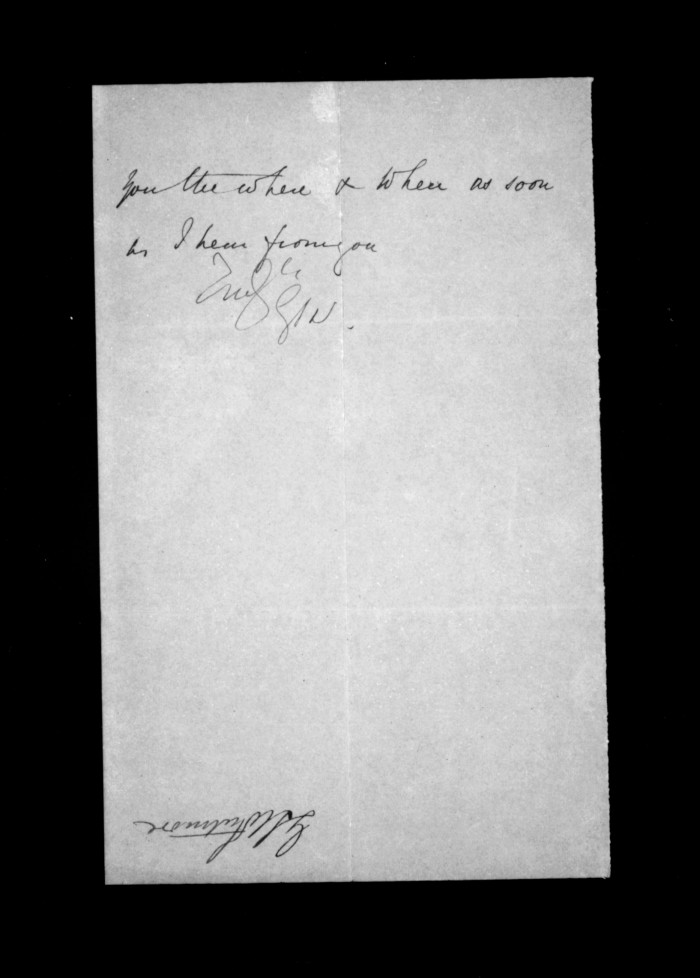 you the where & when as soon
as I hear from you
Truly
GSW.
GSWhitmore